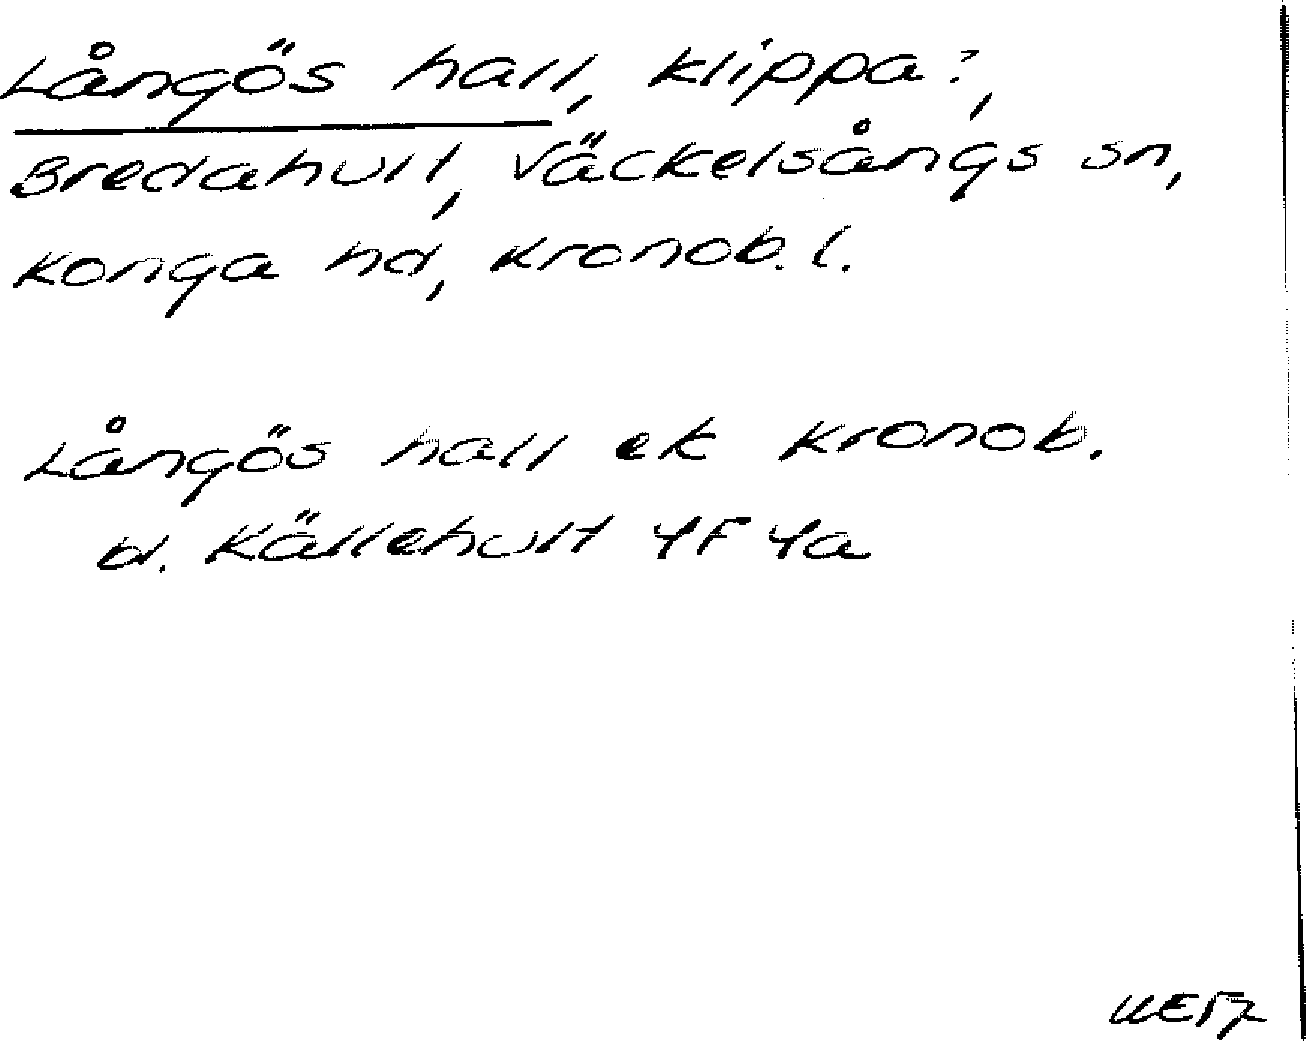 Långös hall, klippa?,
Bredahult, Väckelsångs sn,
Konga hd, Kronob. l.
Långös hall ek Kronob.
bl. Källehult 4F 4a